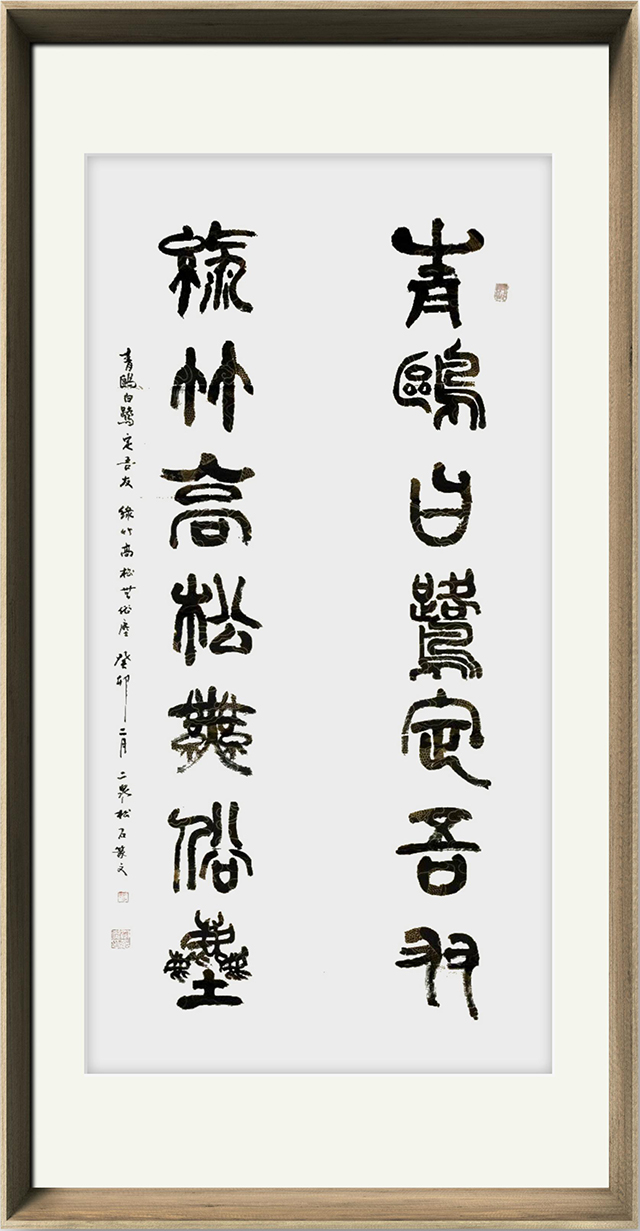 青鷗白鷺定吾友
綠竹高松無俗塵
青鷗白鷺定吾友 綠竹高松無俗塵 癸卯二月 二泉松石篆文